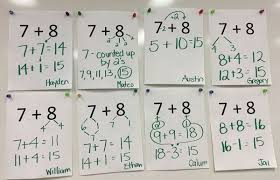 7 + 8
7+7=14
14+1=15
Hayden
7+8
7-counted up
by 2's
7,9,11,13,15
Mateo
7+8
2
5+10=15
Austin
7+8
8+4=12
12+3=15
Gregory
7+8
7+4=11
11+4=15
William
7+8
14+1=15
Ethan
7+8
9+9=18
18-3=15
Calum
7+8
8+8=16
16-1=15
Jai